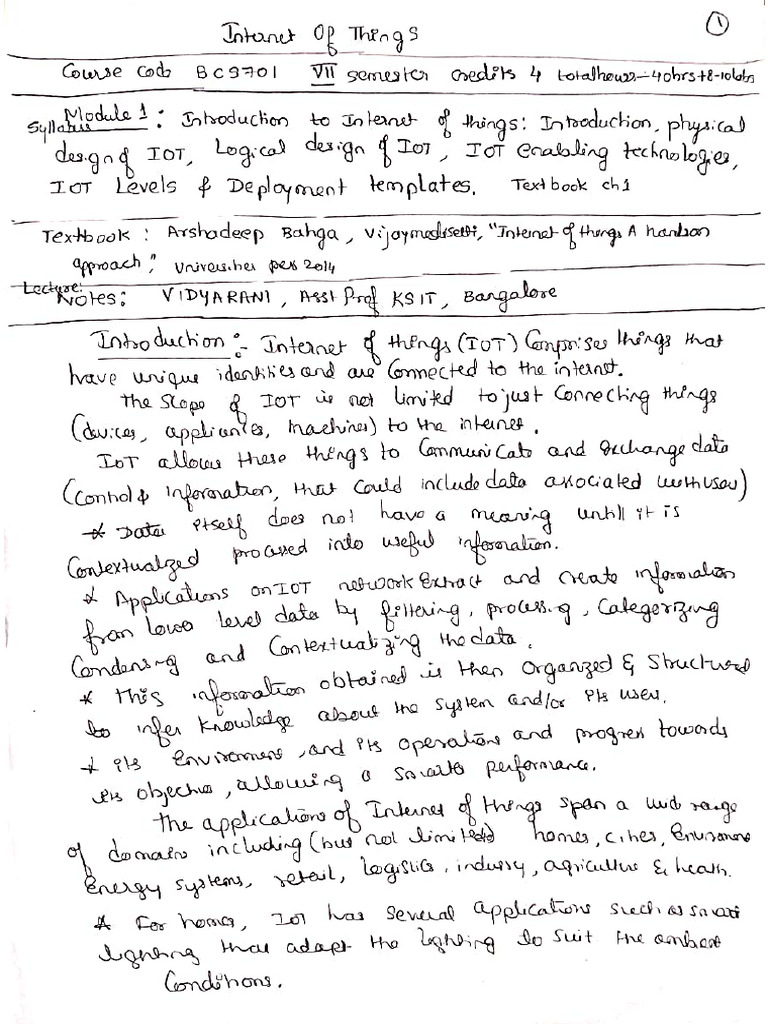 1
Internet Of Things
Course Code BCS701 VII semester credits 4 total hours - 40hrs+8-10 labs
Module 1 : Introduction to Internet of things: Introduction, physical
Syllabus
design of IOT, Logical design of IOT, IOT enabling technologies,
IOT Levels & Deployment templates. Textbook ch1
Textbook : Arshadeep Bahga, Vijay madisetti, "Internet of things A handson
approach", Universities press 2014
Lecture:
Notes: VIDYARANI, Asst Prof KSIT, Bangalore
Introduction :- Internet of things (IOT) Comprises things that
have unique identities and are Connected to the internet.
The Scope of IOT is not limited to just Connecting things
(devices, appliances, machines) to the internet.
IOT allows these things to Communicate and exchange data
(control & information, that could include data associated with users)
* Data itself does not have a meaning untill it is
Contextualized processed into useful information.
* Applications on IOT network Extract and create information
from lower level data by filtering, processing, Categorizing
Condensing and Contextualizing the data.
* This information obtained is then organized & Structured
to infer knowledge about the system and/or its users,
* its Environment, and its operations and progress towards
its objectives, allowing a smarter performance.
The applications of Internet of things span a wide range
of domains including (but not limited) homes, cities, Environment
Energy systems, retail, logistics, industry, agriculture & health.
* For homes, IOT has several applications such as smart
lighting that adapt the lighting to suit the ambient
Conditions.